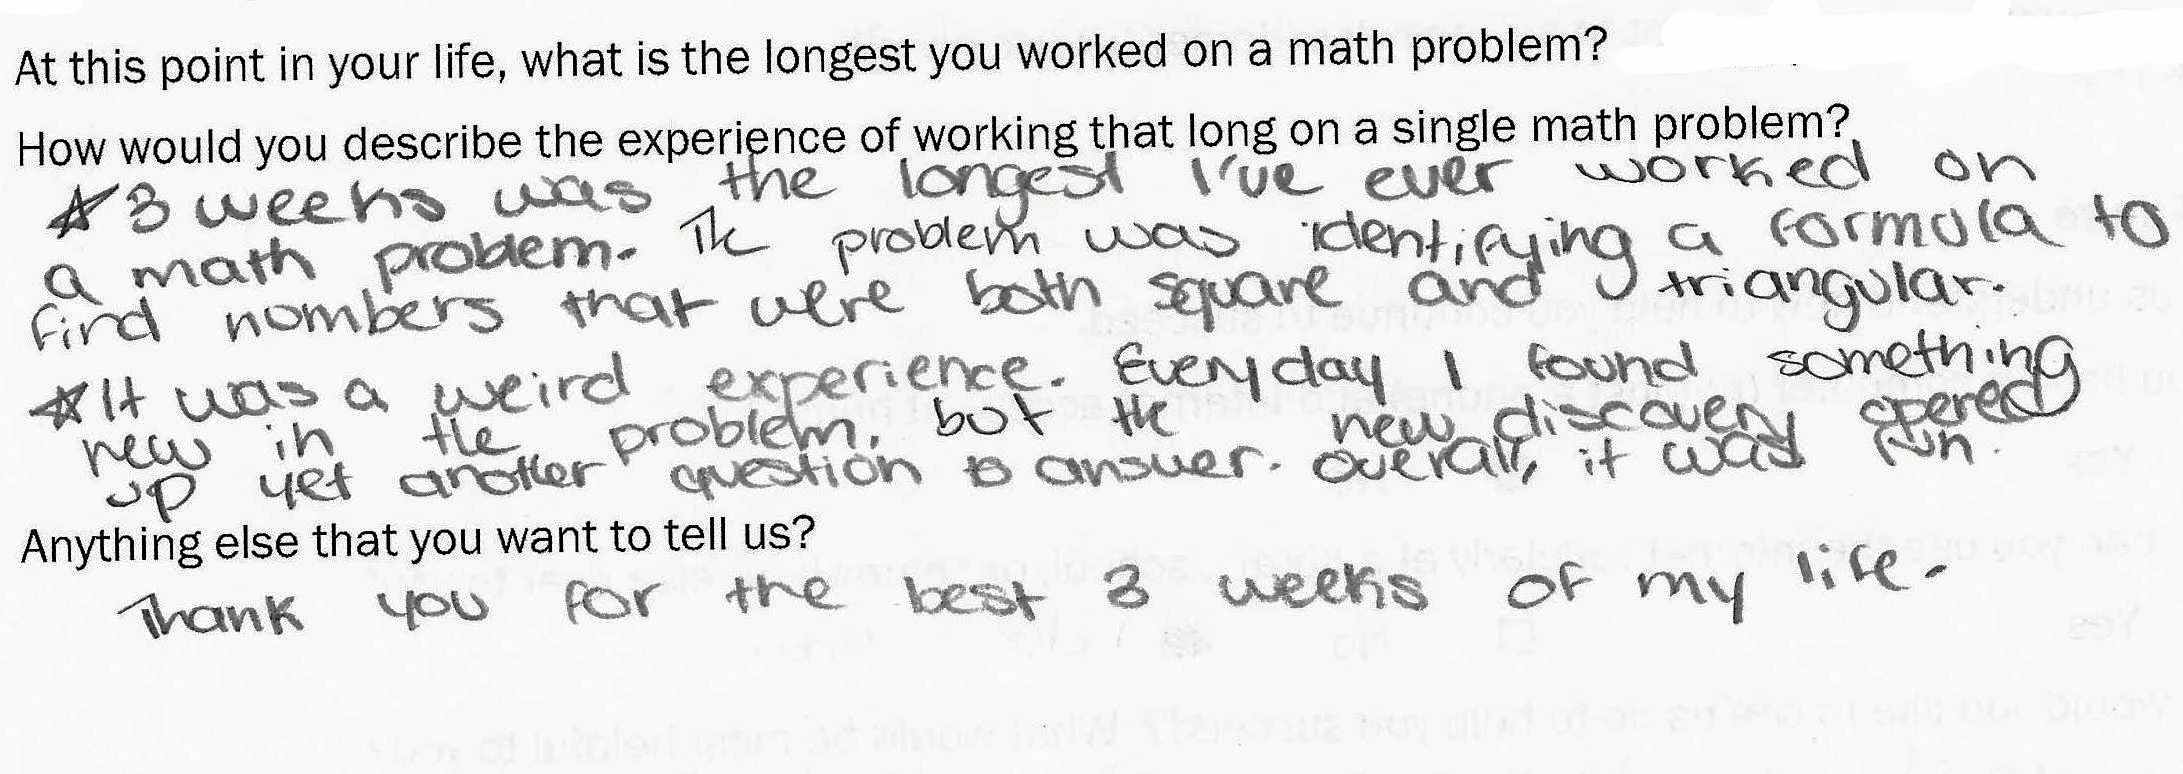 At this point in your life, what is the longest you worked on a math problem?
How would you describe the experience of working that long on a single math problem?
☆ 3 weeks was the longest I've ever worked on
a math problem. The problem was identifying a formula to
find numbers that were both square and triangular.
☆ It was a weird experience. Everyday I found something
new in the problem, but the new discovery opened
up yet another question to answer. Overall, it was fun.
Anything else that you want to tell us?
Thank you for the best 3 weeks of my life.